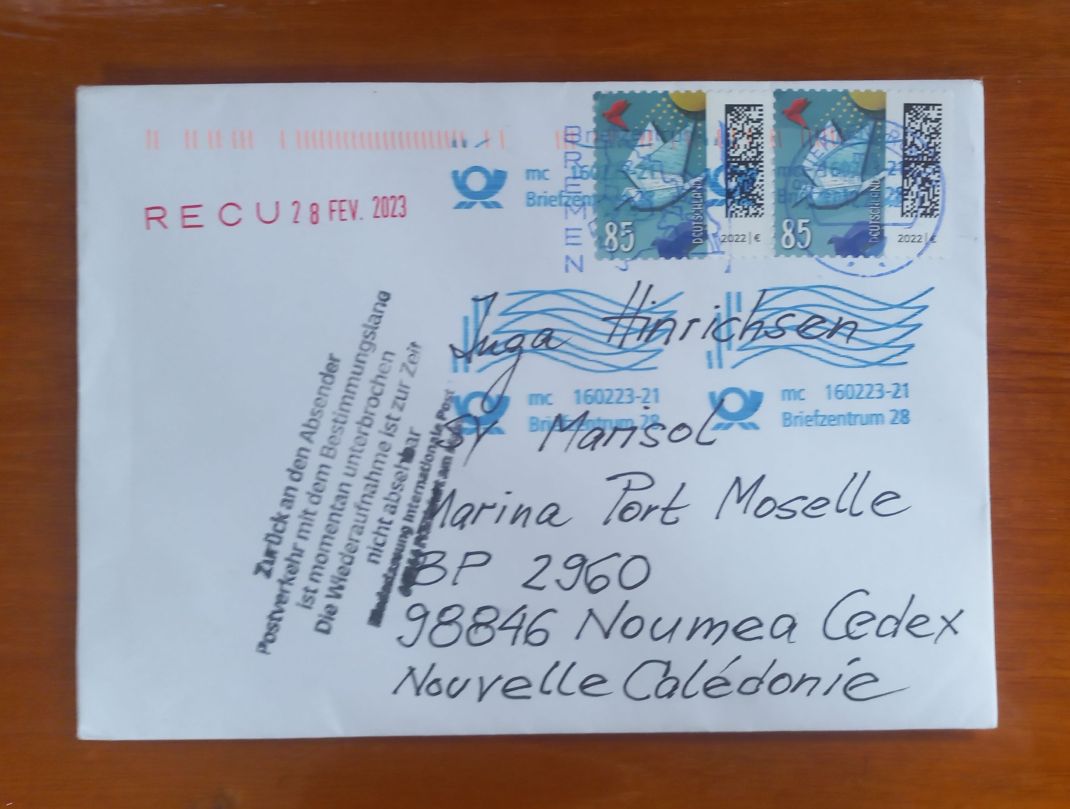 BREMEN
Briefzentrum
mc 160223-21
Briefzentrum
85
DEUTSCHLAND
2022 | €
85
DEUTSCHLAND
2022 | €
RECU 28 FEV. 2023
Inga Hinrichsen
mc 160223-21
Briefzentrum 28
mc 160223-21
Briefzentrum 28
SY Marisol
Marina Port Moselle
BP 2960
98846 Noumea Cedex
Nouvelle Calédonie
Zurück an den Absender
Postverkehr mit dem Bestimmungsland
ist momentan unterbrochen
Die Wiederaufnahme ist zur Zeit
nicht absehbar
Internationale Post